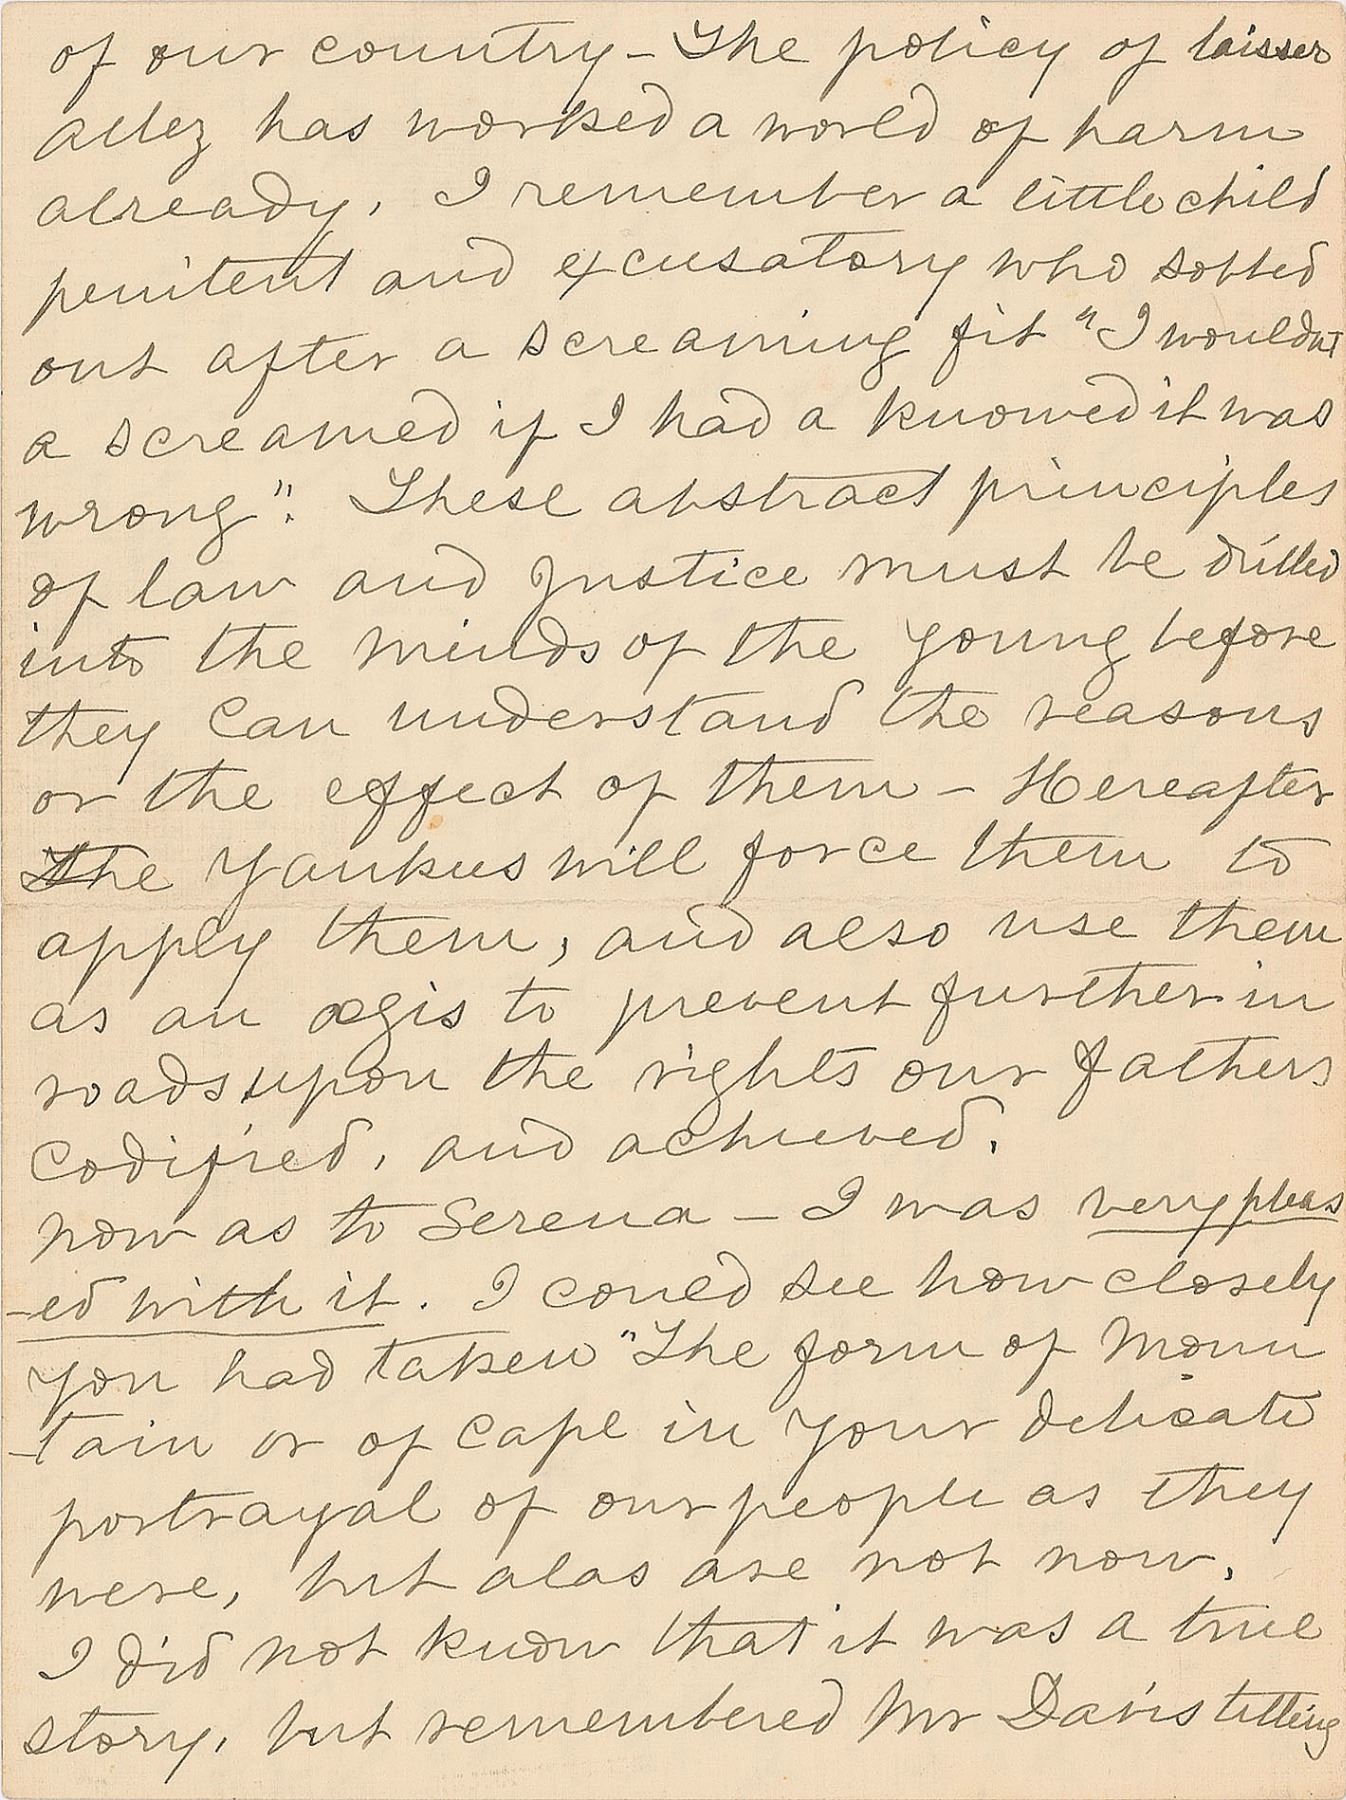 of our country - The policy of laisser
allez has worked a world of harm
already, I remember a little child
penitent and excusatory who sobbed
out after a screaming fit "I wouldnt
a screamed if I had a knowed it was
wrong". These abstract principles
of law and Justice must be drilled
into the minds of the young before
they can understand the reasons
or the effect of them - Hereafter
The Yankees will force them to
apply them, and also use them
as an ægis to prevent further in
roads upon the rights our fathers
codified, and achieved.
now as to Serena - I was very pleas
-ed with it. I could see how closely
you had taken "The form of Moun
-tain or of Cape in your delicate
portrayal of our people as they
were, but alas are not now.
I did not know that it was a true
story, but remembered Mr Davis telling